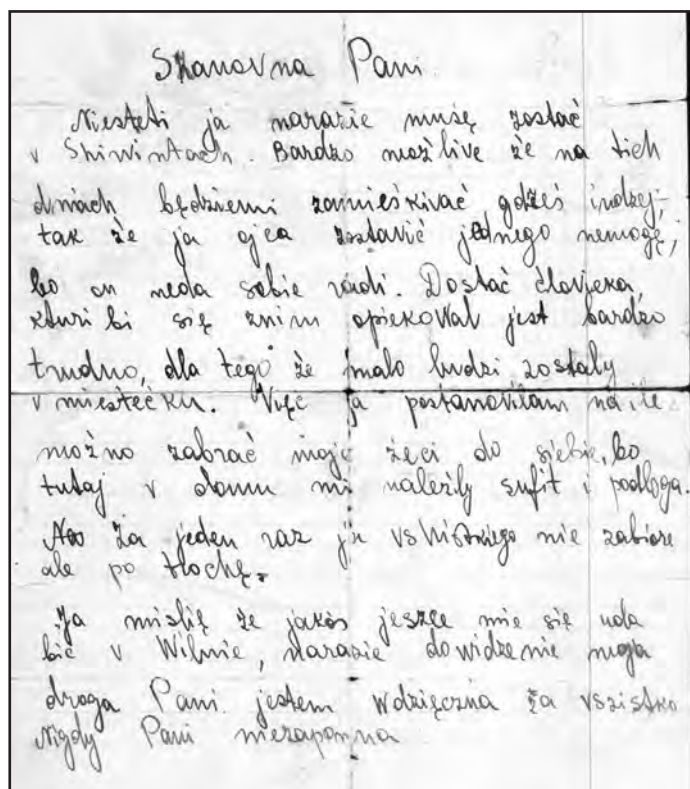 Skanovna Pani.
Niestęti ja narazie muszę zostać
v Shiwintach. Bardzo możlive że na tich
dniach będziemi zamieśkivać gdześ indzej,
tak że ja ojca zostavić jednego nemogę,
bo on neda sobie radi. Dostać človjeka,
kturi bi się znim opiekoval jest bardzo
trudno, dla tego że malo ludzi zostaly
v miestečku. Vięc ja postanovilam na ile
možno zabrać moje žeci do siebie, bo
tutaj v domu mi należily sufit i podloga.
za jeden raz ja vshistkiego nie zabiorę
ale po trochę.
Ja mislię že jakoś jeszče mie się uda
bić v Wilnie, narazie dowidzenie moja
droga Pani. jestem wdzięczna za vszistko
Nigdy Pani niezapomna